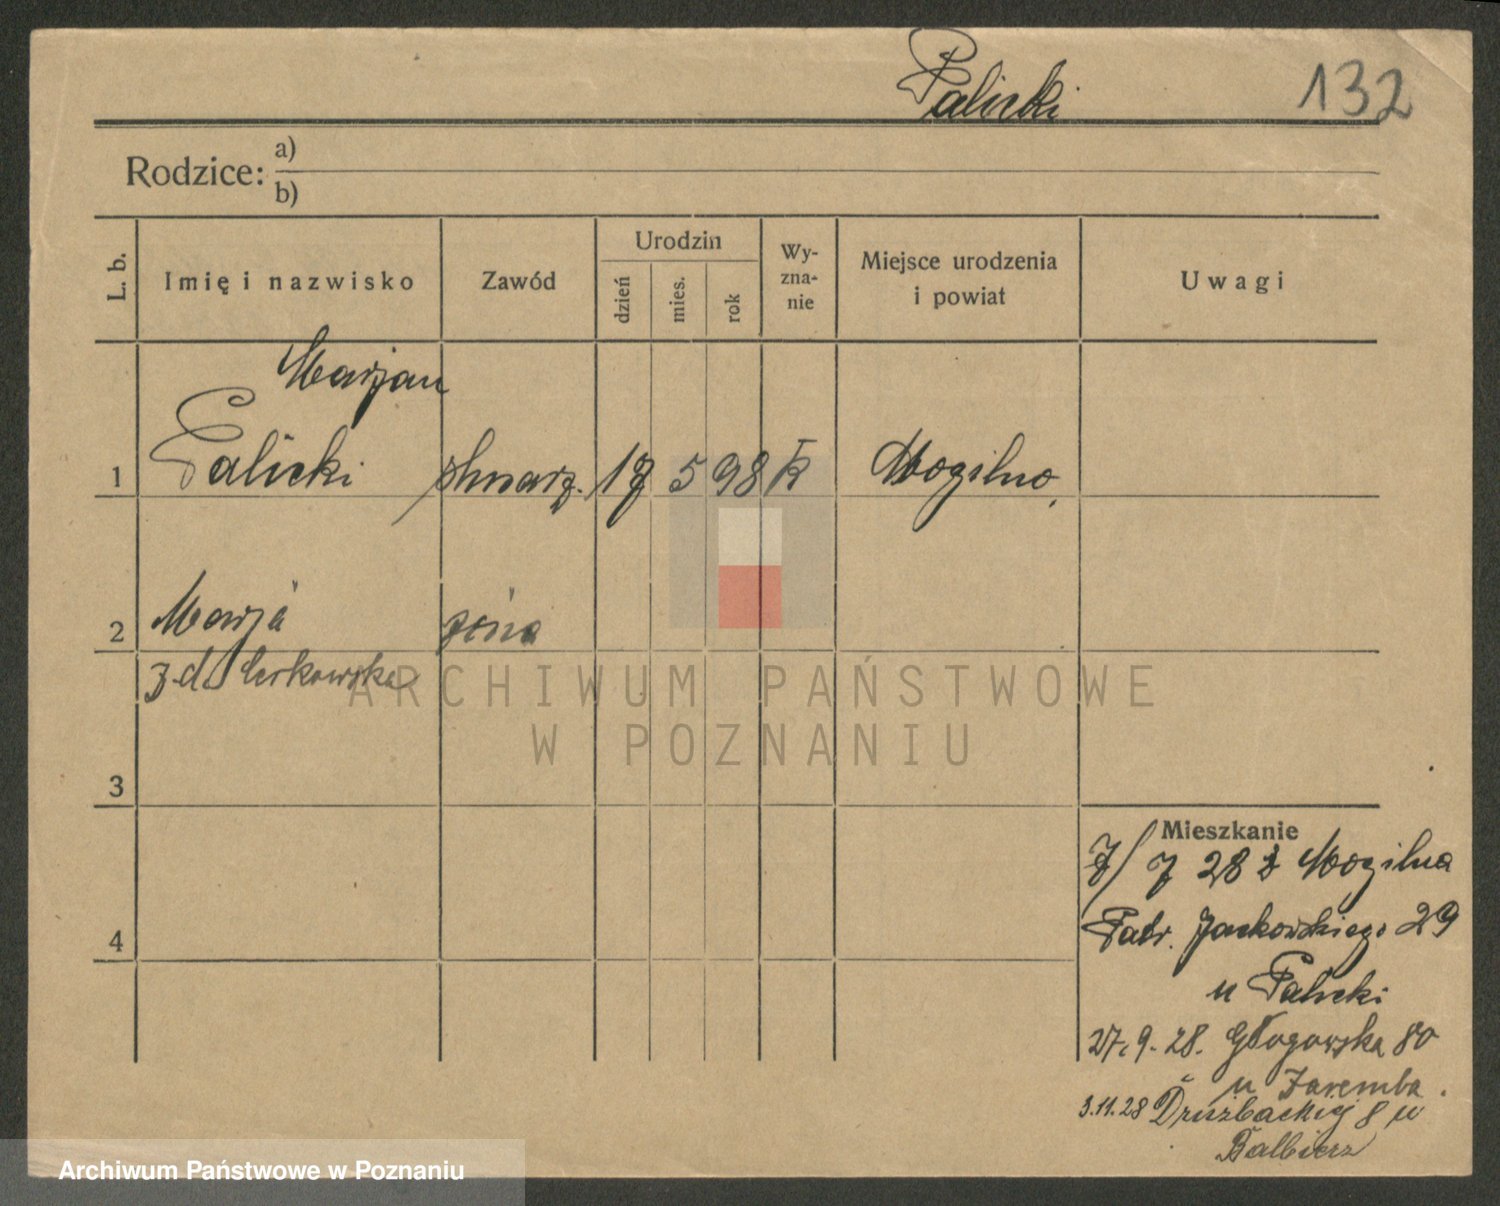 Palicki 132
Rodzice: a)
b)
L. b. Imię i nazwisko Zawód Urodzin dzień mies. rok Wy-zna-nie Miejsce urodzenia i powiat Uwagi
Marjan
1 Palicki 17 5 98 k Mogilno
2 Marja żona
z d.
ARCHIWUM PAŃSTWOWE
W POZNANIU
3
Mieszkanie
7/7 28 z Mogilna
4 Patr. Jackowskiego 29
u Palicki
27.9.28. Głogowska 80
u Zaremba.
3.11.28 Drużbackiej 8 u
Balbierz
Archiwum Państwowe w Poznaniu